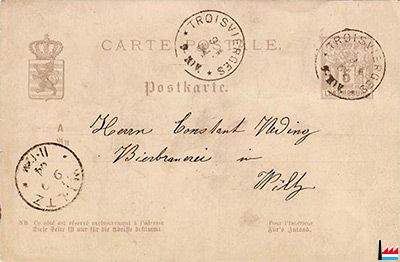 CARTE POSTALE.
Postkarte.
TROISVIERGES
TROISVIERGES
A
An
Herrn Constant Neding
Bierbrauerei in
Wiltz
WILTZ
NB. Ce côté est réservé exclusivement à l'adresse
Diese Seite ist nur für die Adresse bestimmt
Pour l'intérieur
Für's Inland.